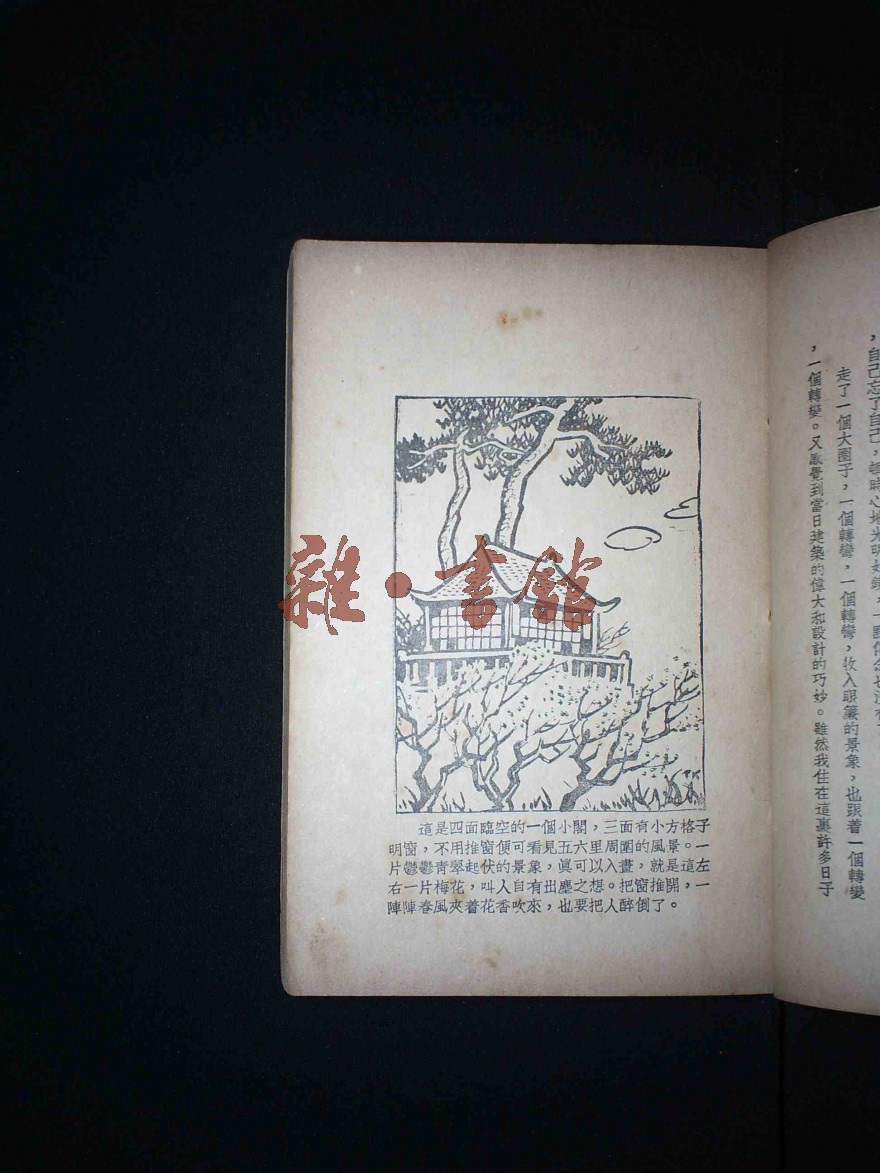 這是四面臨空的一個小閣，三面有小方格子
明窗，不用推窗便可看見五六里周圍的風景。一
片鬱鬱青翠起伏的景象，眞可以入畫，就是這左
右一片梅花，叫人自有出塵之想。把窗推開，一
陣陣春風夾着花香吹來，也要把人醉倒了。
雜·書館
，自己忘了自己，
走了一個大圈子，一個轉彎，一個轉彎，收入眼簾的景象，也跟着一個轉變
，一個轉變。又感覺到當日建築的偉大和設計的巧妙。雖然我住在這裏許多日子